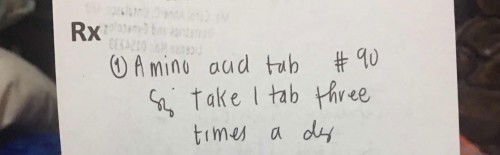 Rx
① Amino acid tab #90
Sig: take 1 tab three
times a day